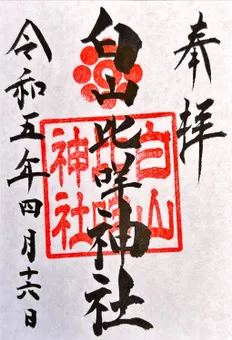 奉拝
白山比咩神社
白山
比咩
神社
令和五年四月十六日